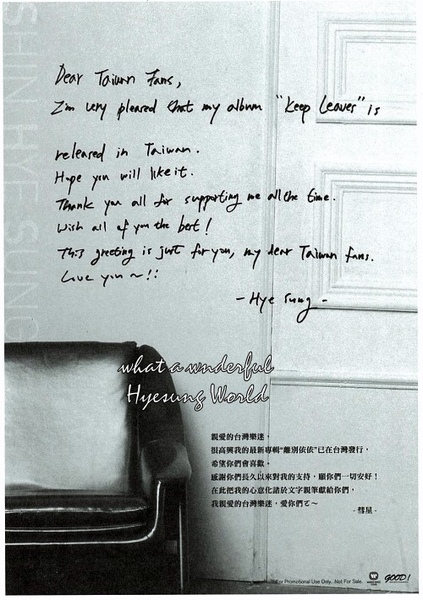 SHIN HYE SUNG
Dear Taiwan Fans,
I'm very pleased that my album "keep leaves" is
released in Taiwan.
Hope you will like it.
Thank you all for supporting me all the time.
Wish all of you the best!
This greeting is just for you, my dear Taiwan fans.
Love you ~!!
- Hye Sung -
what a wnderful
Hyesung World
親愛的台灣樂迷，
很高興我的最新專輯“離別依依”已在台灣發行，
希望你們會喜歡，
感謝你們長久以來對我的支持，願你們一切安好！
在此把我的心意化諸於文字親筆獻給你們，
我親愛的台灣樂迷，愛你們ㄛ～
- 彗星 -
For Promotional Use Only. Not For Sale.
GOOD!